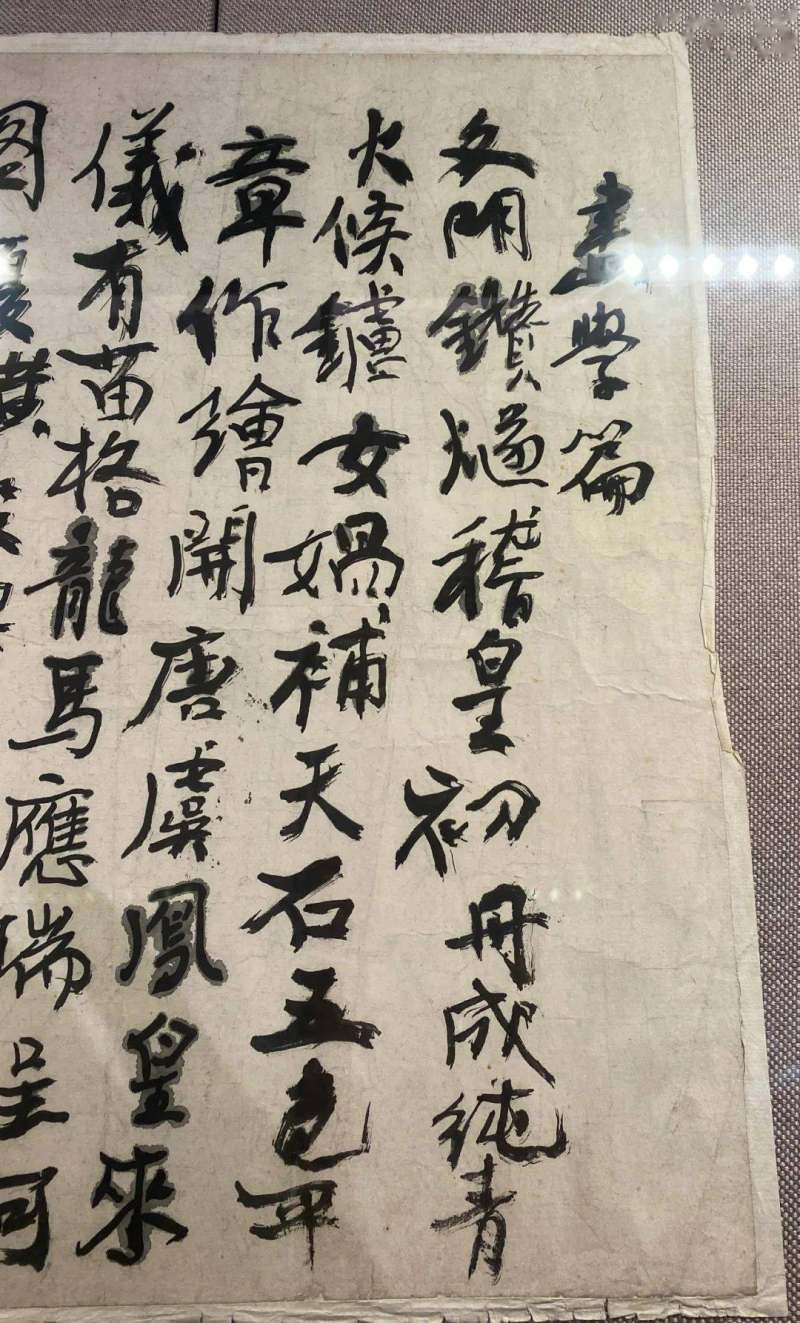 畫學篇
文明鑽燧稽皇初丹成純青
火候鑪女媧補天石五色平
章作繪開唐虞鳳皇來
儀有苗格龍馬應瑞呈河
圖